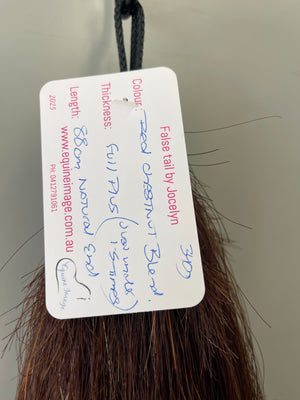 False tail by Jocelyn
Colour: Red CHESTNUT Blend.
Thickness: Full Plus
Length: 88cm Natural End
www.equineimage.com.au
2025 PH. 0412791061
Equine Image